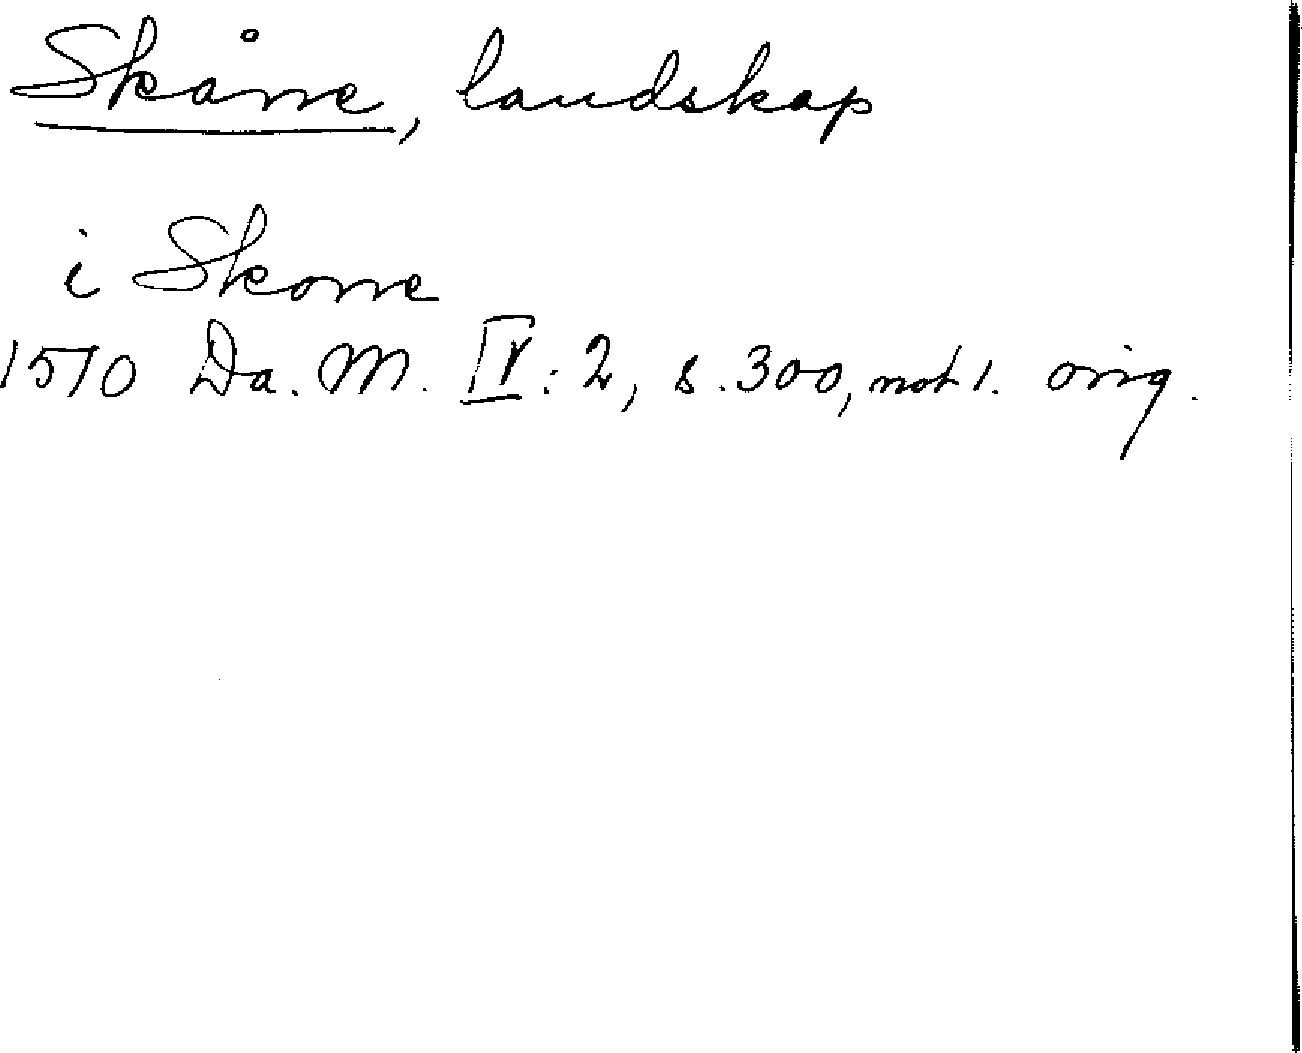 Skåne, landskap
i Skone
1570 Da. M. IV: 2, s. 300, not 1. orig.